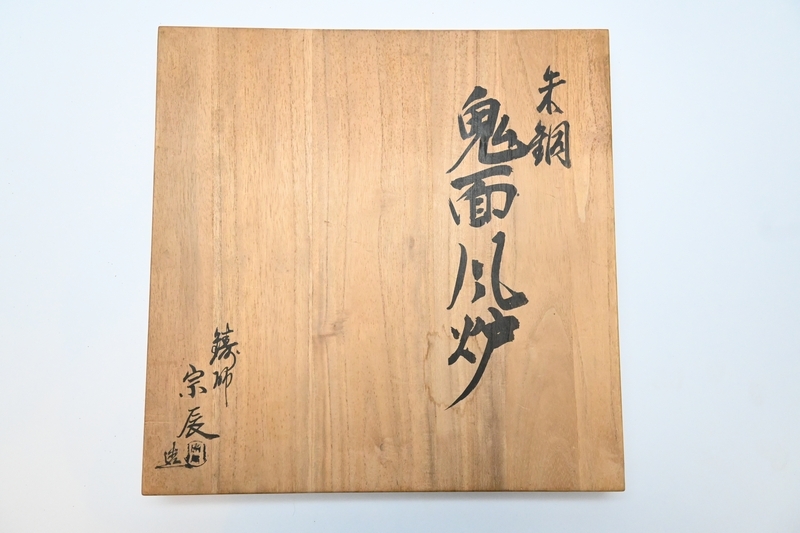 朱銅
鬼面風炉
鋳師
宗辰
造